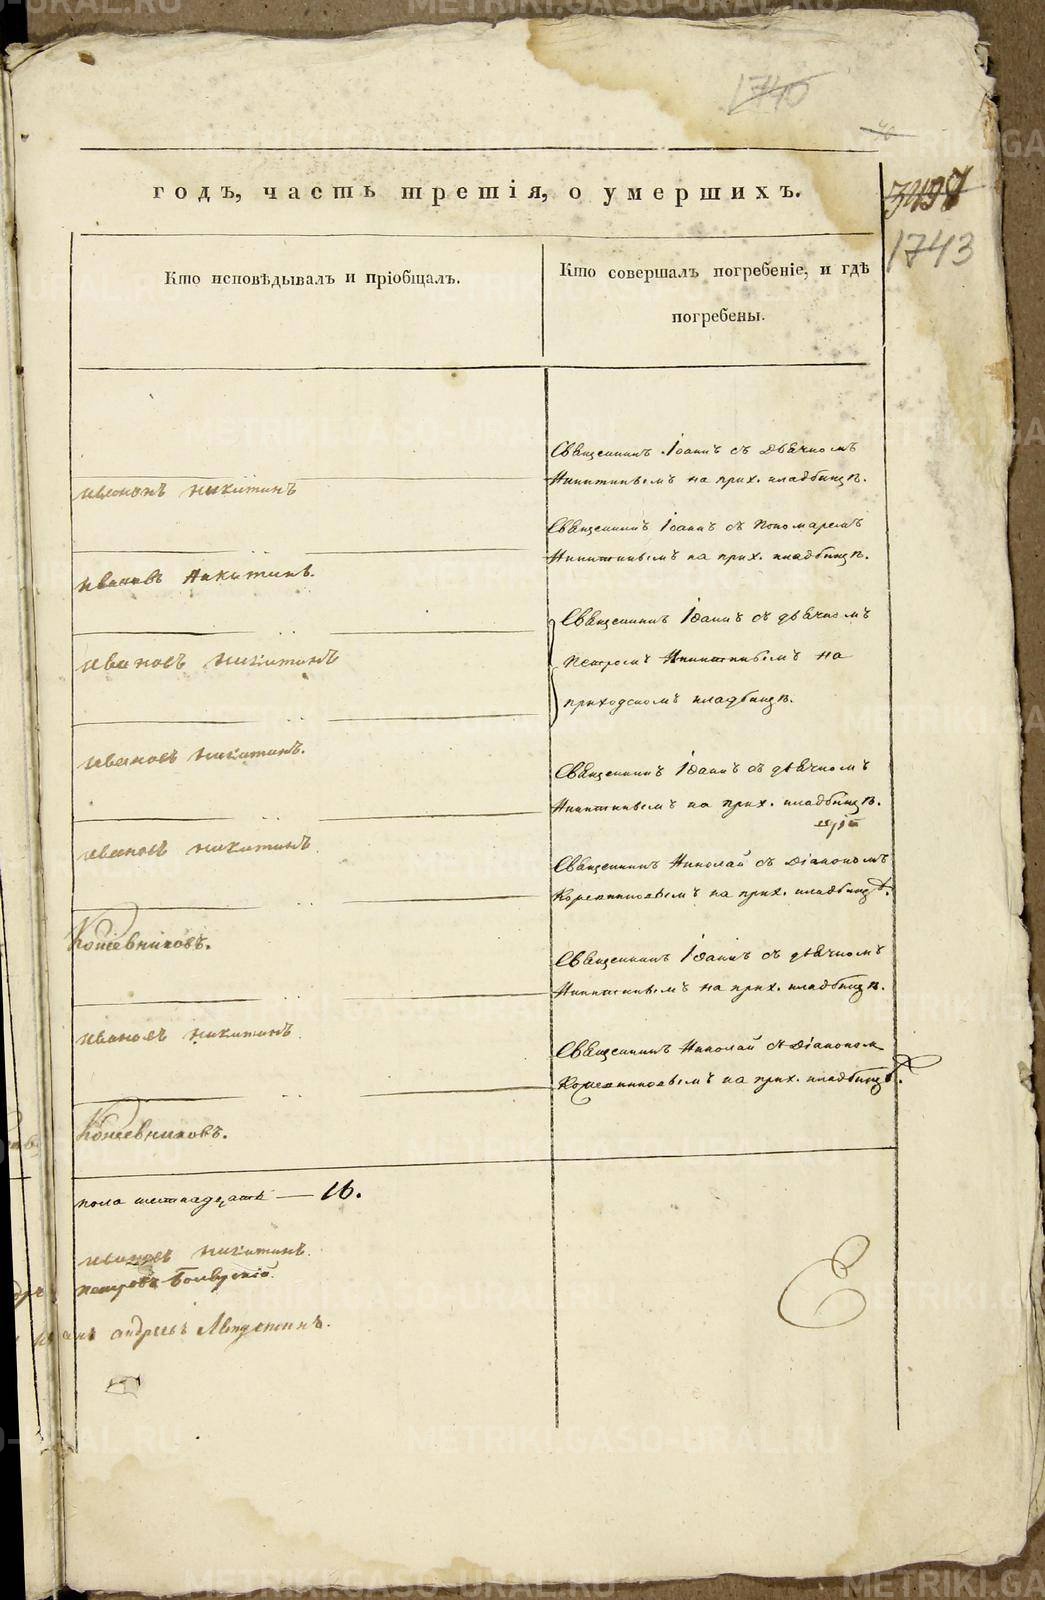 1740
годъ, часть третія, о умершихъ.
1743
Кто исповѣдывалъ и пріобщалъ.
Кто совершалъ погребеніе, и гдѣ
погребены.
Священникъ Іоаннъ съ дьячкомъ
Никитинымъ на прих. кладбищѣ.
Ивановъ Никитинъ
Священникъ Іоаннъ съ Пономаремъ
Никитинымъ на прих. кладбищѣ.
Ивановъ Никитинъ.
Священникъ Іоаннъ съ дьячкомъ
Петромъ Никитинымъ на
приходскомъ кладбищѣ.
Ивановъ Никитинъ
Ивановъ Никитинъ.
Священникъ Іоаннъ съ дьячкомъ
Никитинымъ на прих. кладбищѣ.
Ивановъ Никитинъ
Священникъ Николай съ Діакономъ
на прих. кладбищѣ.
Кожевниковъ.
Священникъ Іоаннъ съ дьячкомъ
Никитинымъ на прих. кладбищѣ.
Ивановъ Никитинъ
Священникъ Николай съ Діакономъ
на прих. кладбищѣ.
Кожевниковъ.
пола шестнадцать — 16.
Ивановъ Никитинъ.
Петровъ
Андреевъ
METRIKI.GASO-URAL.RU